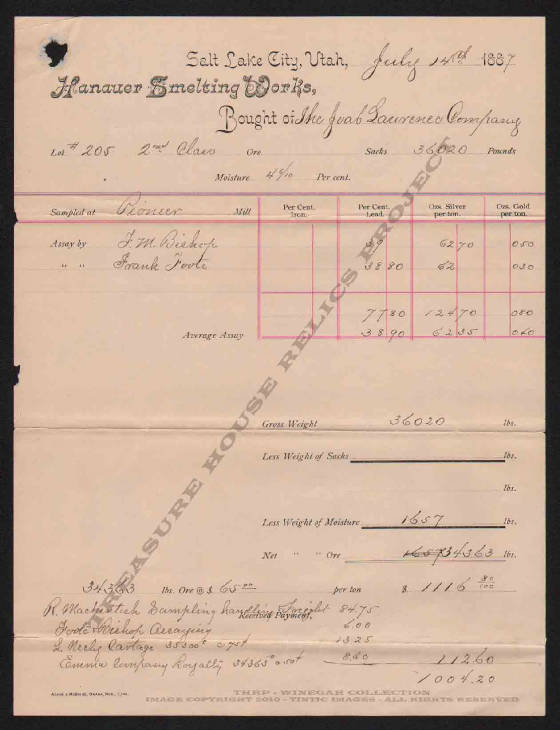 Salt Lake City, Utah, July 14th 1887
Hanauer Smelting Works,
Bought of The Joab Lawrence Company
Lot #205 2nd Class Ore Sacks 36020 Pounds
Moisture 4 6/10 Per cent.
Sampled at Pioneer Mill Per Cent. Iron. Per Cent. Lead. Ozs. Silver per ton. Ozs. Gold per ton.
Assay by F. M. Bishop 39 62 70 050
" " Frank Foote 38 80 62 030
77 80 124 70 080
Average Assay 38 90 62 35 040
Gross Weight 36020 lbs.
Less Weight of Sacks lbs.
lbs.
Less Weight of Moisture 1657
Net " " Ore 1657 34363 lbs.
34363 lbs. Ore @ $ 65 00 per ton $ 1116 80/100
R. Sampling handling Freight 84.75
Received Payment,
Foote & Bishop Assaying 6.00
Cartage 13.25
Emma Company Royalty 8.60 112 60
1004.20
TREASURE HOUSE RELICS PROJECT
THRP - WINEGAR COLLECTION
IMAGE COPYRIGHT 2010 - TINTIC IMAGES - ALL RIGHTS RESERVED